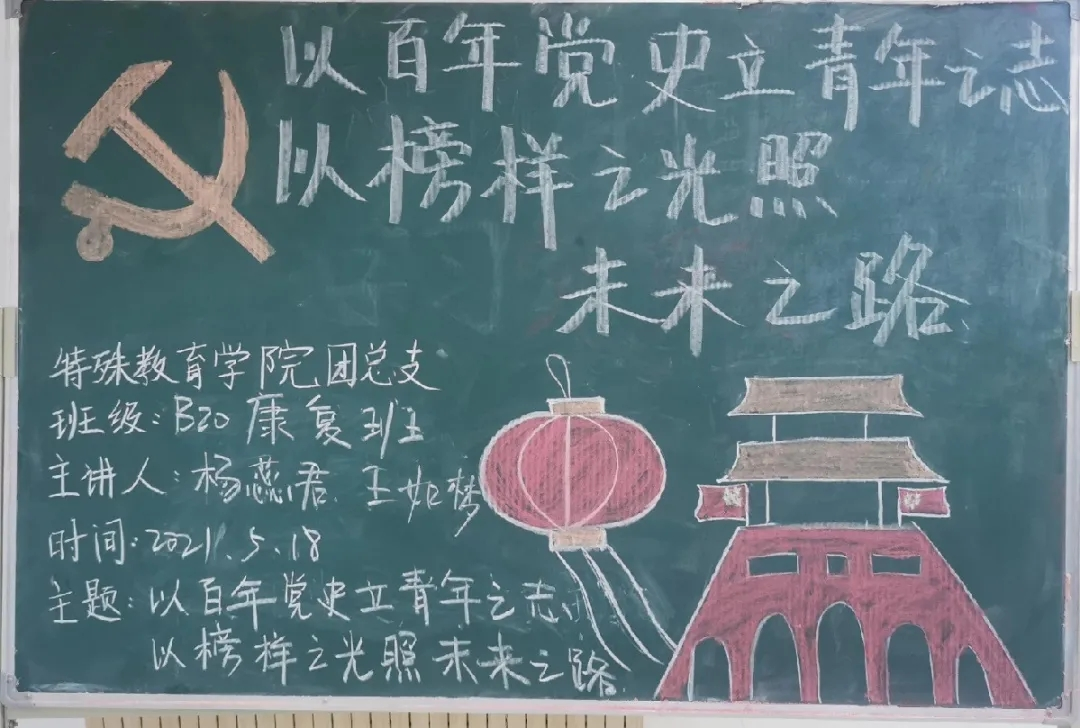 以百年党史立青年之志
以榜样之光照
未来之路
特殊教育学院团总支
班级:B20康复班
主讲人:杨蕊君 王如梦
时间:2021.5.18
主题:以百年党史立青年之志
以榜样之光照未来之路